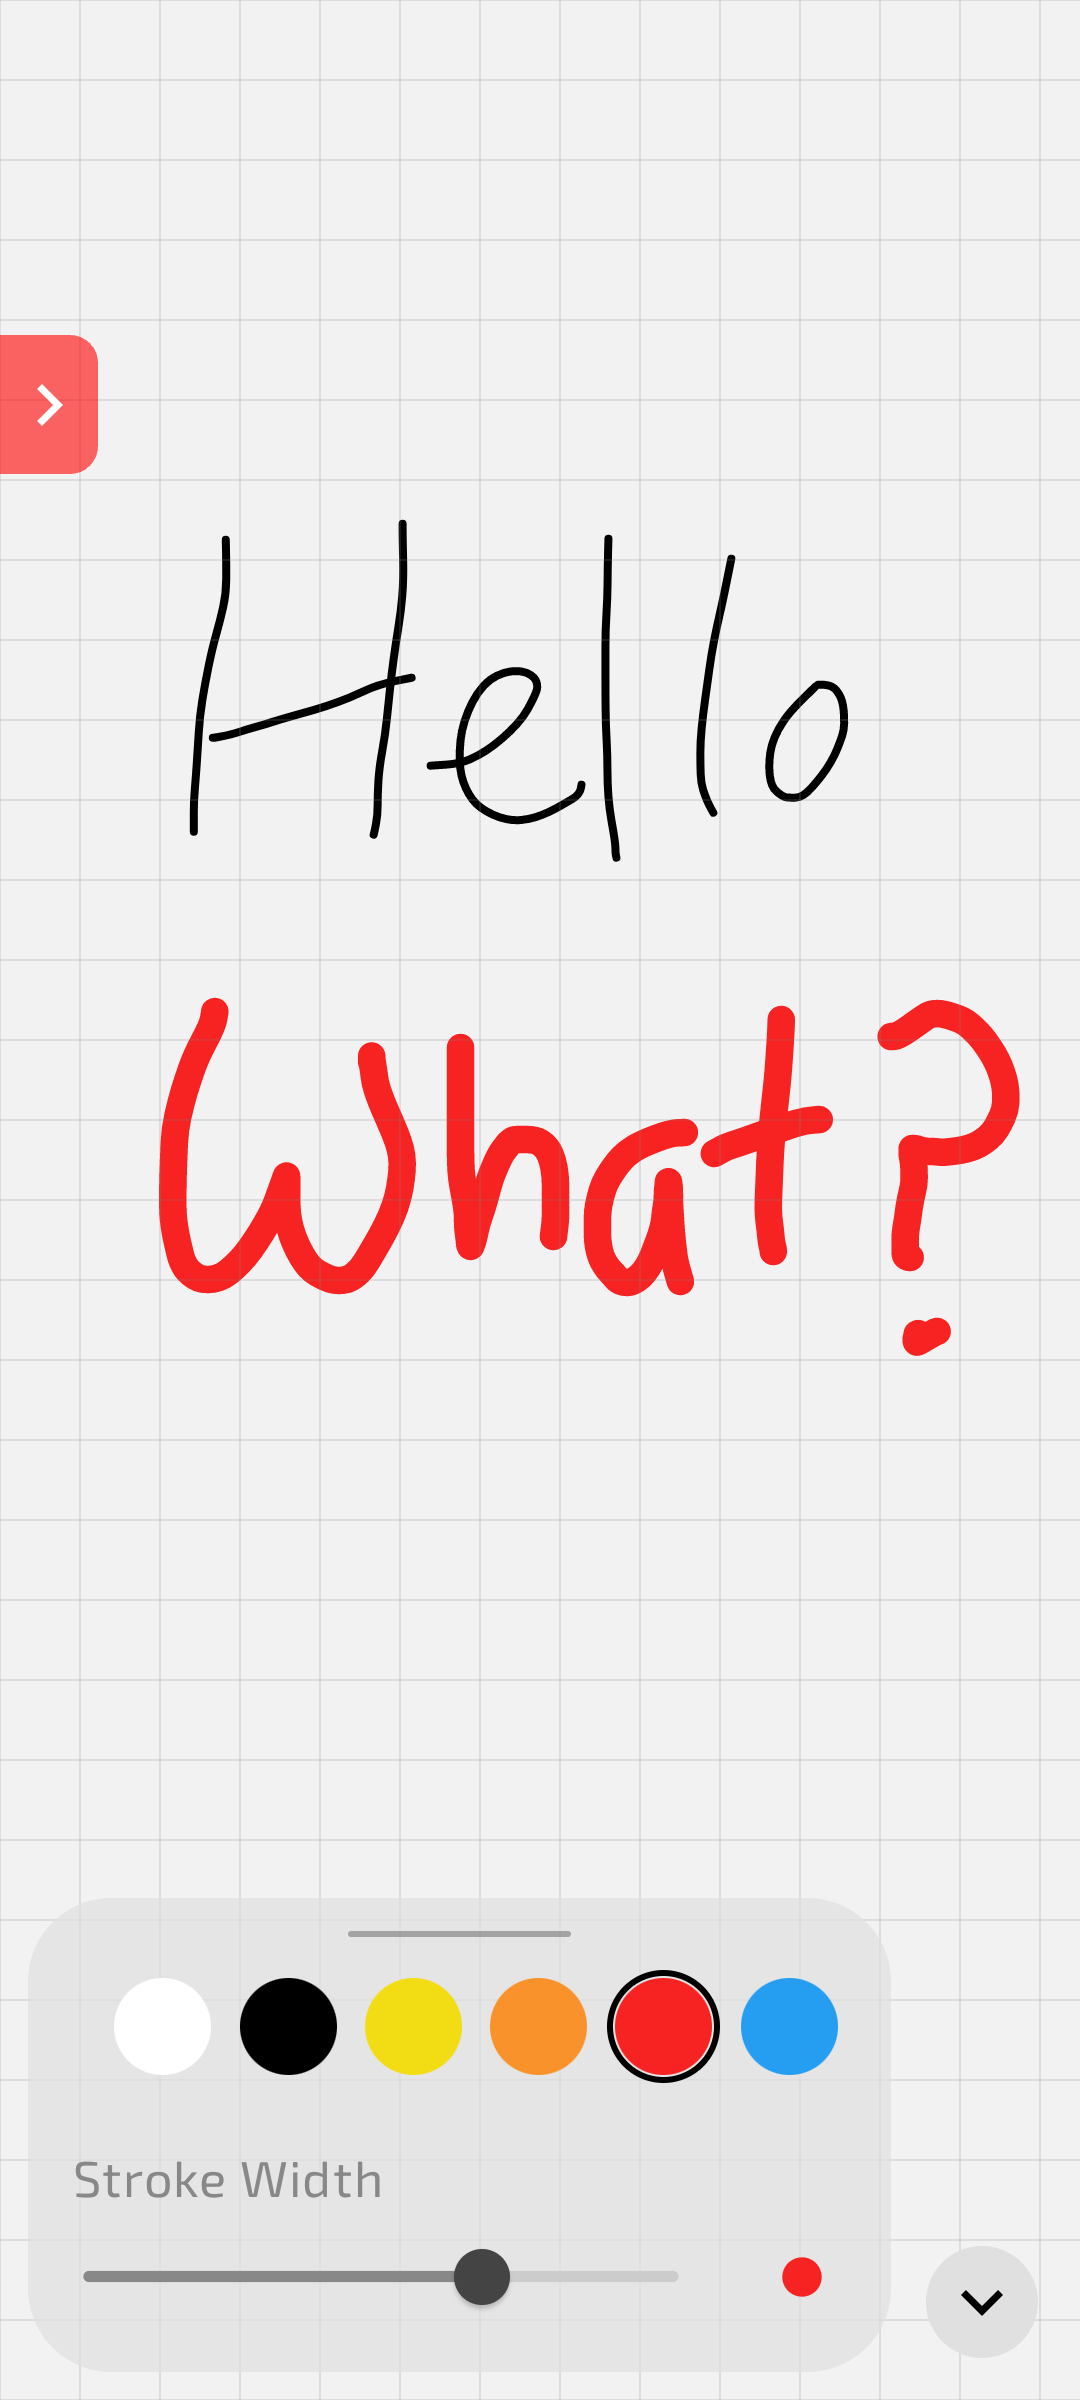 Hello
What?
Stroke Width